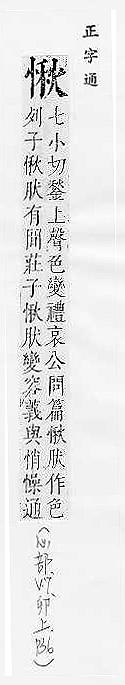 正字通
愀
七小切鍫上聲色變禮哀公問篇愀肰作色
列子愀肰有間莊子愀肰變容義與悄懆通
(心部 卯上.136)